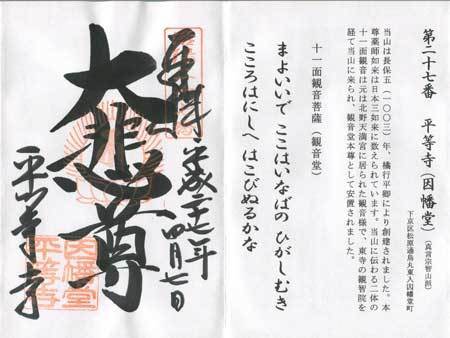 第二十七番　平等寺（因幡堂）（真言宗智山派）
下京区松原通烏丸東入因幡堂町
当山は長保五（一〇〇三）年、橘行平卿により創建されました。本
尊薬師如来は日本三如来に数えられています。当山に伝わる二体の
十一面観音は元は北野天満宮に居られた観音様で、東寺の観智院を
経て当山に来られ、観音堂本尊として安置されました。
十一面観音菩薩（観音堂）
まよいいで ここはいなばの ひがしむき
こころはにしへ はこびぬるかな
奉拝
平成二十七年四月七日
大悲尊
平等寺
因幡堂
平等寺